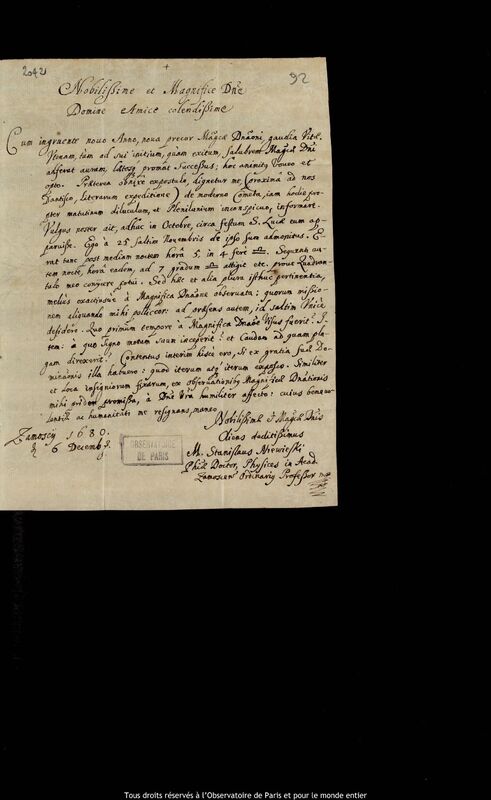 2042
92
Nobilissime et Magnifice Dne
Domine Amice colendissime
Cum ingruente novo Anno, nova precor Magcæ Dnaoni, gaudia Vitæ.
Utinam, tam ad sui initium, quàm exitum, salubrem Magcæ Dni
adferat auram, promat Successus; hoc animitus Voveo et
opto. Præterea expostulo, dignetur me (proxima ad nos
Dantisco, literarum expeditione) de moderno Cometa, iam hodie pro-
pter matutinum diluculum, et Plenilunium inconspicuo, informare.
Vulgus noster ait, adhuc in Octobre, circa festum S. Lucæ eum ap-
paruisse. Ego à 25 saltim Novembris de ipso sum admonitus. E-
rat tunc post mediam noctem horâ 5, in 4 ferè ♎. Sequenti au-
tem nocte, horâ eadem, ad 7 gradum ♎ attigit etc. prout Quadran-
te meo conijcere potui. Sed hæc et alia plura isthuc pertinentia,
meliùs exactiusque à Magnifica Dnaone observata: quorum missio-
nem aliquando mihi polliceor. ad præsens autem, id saltim Unicè
desidero. Quo primùm tempore à Magnifica Dnaone Visus fuerit? I-
tem: à quo signo motum suum inceperit? et Caudam ad quam pla-
gam direxerit? Contentus interim hisce ero, si ex gratia suæ Do-
minaonis illa habuero: quod iterum atq iterum exposco. Similiter
et Loca insigniorum fixarum, ex observationibus Magnificæ Dnationis
mihi promissa, à Dne humiliter affecto: cuius benevo-
lentiæ ac humanitati me resignans, maneo
Nobilissimæ et Magcæ Dnis
Zamoscij 1680.
Cliens deditissimus
6 Decemb.
OBSERVATOIRE
DE PARIS
M. Stanislaus Niewieski
Phiæ Doctor, Physices in Acad.
Zamoscen Ordinarius Professor
Tous droits réservés à l'Observatoire de Paris et pour le monde entier